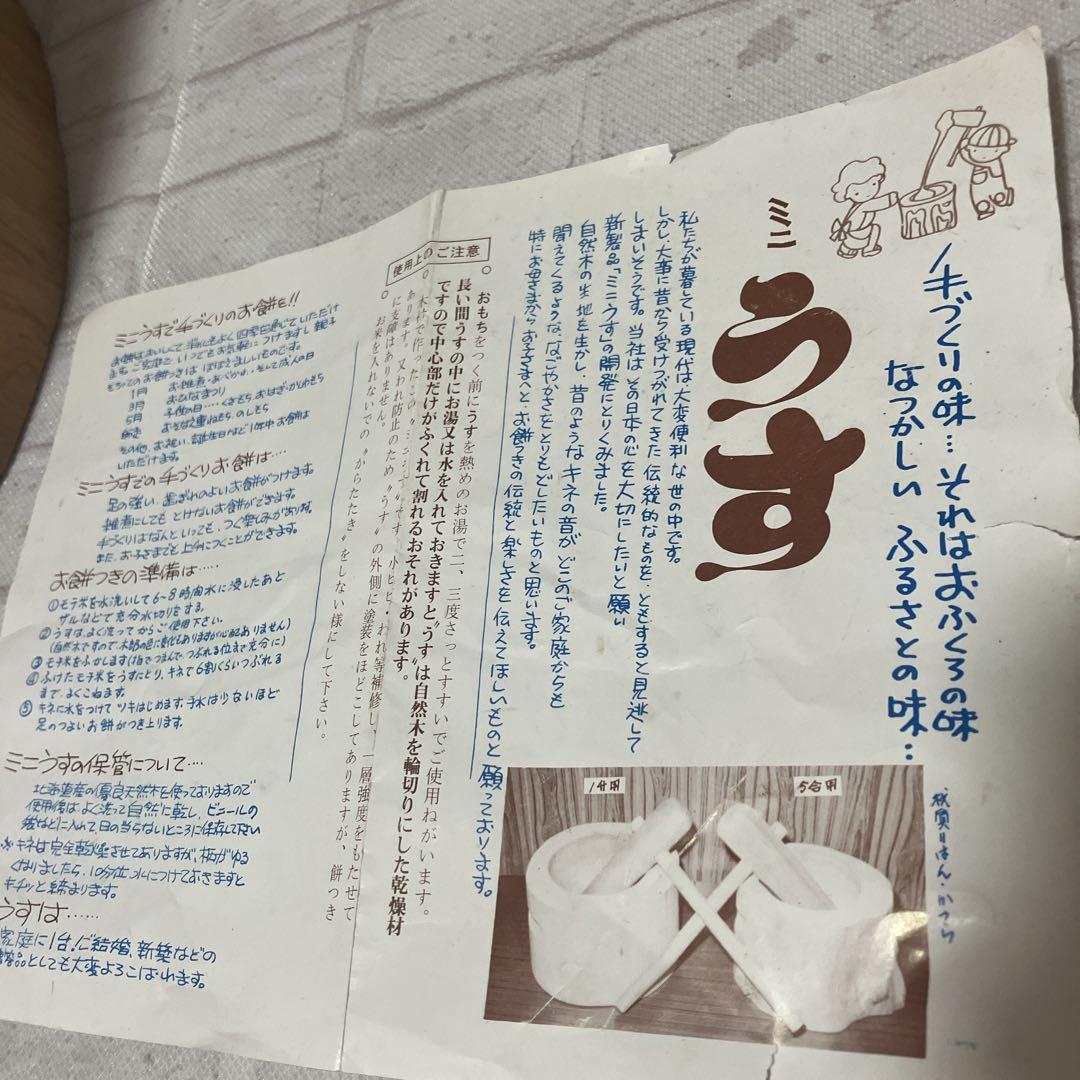 手づくりの味…それはおふくろの味
なつかしい ふるさとの味…
ミニ
うす
私たちが暮している現代は大変便利な世の中です。
しかし、大事に昔から受けつがれてきた伝統的なものを、ともすると見逃して
しまいそうです。当社は、その日本の心を大切にしたいと願い
新製品「ミニうす」の開発にとりくみました。
自然木の生地を生かし、昔のような、キネの音が、どこのご家庭からも
聞えてくるような、なごやかさをとりもどしたいものと思います。
特にお母さまからお子さまへと、お餅つきの伝統と楽しさを伝えてほしいものと願っております。
1升用
5合用
使用上のご注意
おもちをつく前にうすを熱めのお湯で二、三度さっとすすいでご使用ねがいます。
長い間うすの中にお湯又は水を入れておきますと“うす”は自然木を輪切りにした乾燥材
ですので中心部だけがふくれて割れるおそれがあります。
木材で作ったこの“ミニうす”です 小ヒビ・われ等補修し、一層強度をもたせて
あります。又われ防止のため“うす”の外側に塗装をほどこしてありますが、餅つき
に支障はありません。
お米を入れないでの“からたたき”をしない様にして下さい。
ミニうすで手づくりのお餅を!!
お餅はおいしくて、消化もよく四季を通じていただけ
ます。ご家庭で、いつでもお気軽につけますし親子
もちつきのお餅つきは、ほほえましいものです。
1月 お雑煮・あべかわ・そして成人の日
3月 おひなまつり
5月 子供の日……くさもち、おはぎ・かしわもち
師走 おそなえ重ねもち、のしもち
その他、お祝い、お誕生日など1年中お餅は
いただけます。
ミニうすでの手づくりお餅は…
足の強い、歯ぎれのよいお餅がつけます。
雑煮にしても、とけないお餅ができます。
手づくりはなんといっても、つく楽しみがあります。
また、お子さまでも上手につくことができます。
お餅つきの準備は……
①モチ米を水洗いして6~8時間水に浸したあと
ザルなどで充分水切りをする。
②うすは、よく洗ってからご使用下さい。
(自然木ですので、木部の色に変化もありますが心配ありません)
③モチ米をふかします(指でつまんで、つぶれる位まで充分に)
④ふけたモチ米をうすにとり、キネで6割くらいつぶれる
まで、よくこねます。
⑤キネに水をつけて ツキはじめます。手水は少ないほど
足のつよいお餅がつき上ります。
ミニうすの保管について…
北海道産の優良天然木を使っておりますので
使用後は、よく洗って自然に乾し、ビニールの
袋などに入れて日の当らないところに保存して下さい
※キネは完全乾燥させてありますが、柄がゆる
くなりましたら、10分位水につけておきますと
キチッと締まります。
うすは……
家庭に1台!ご結婚、新築などの
贈答品としても大変よろこばれます。